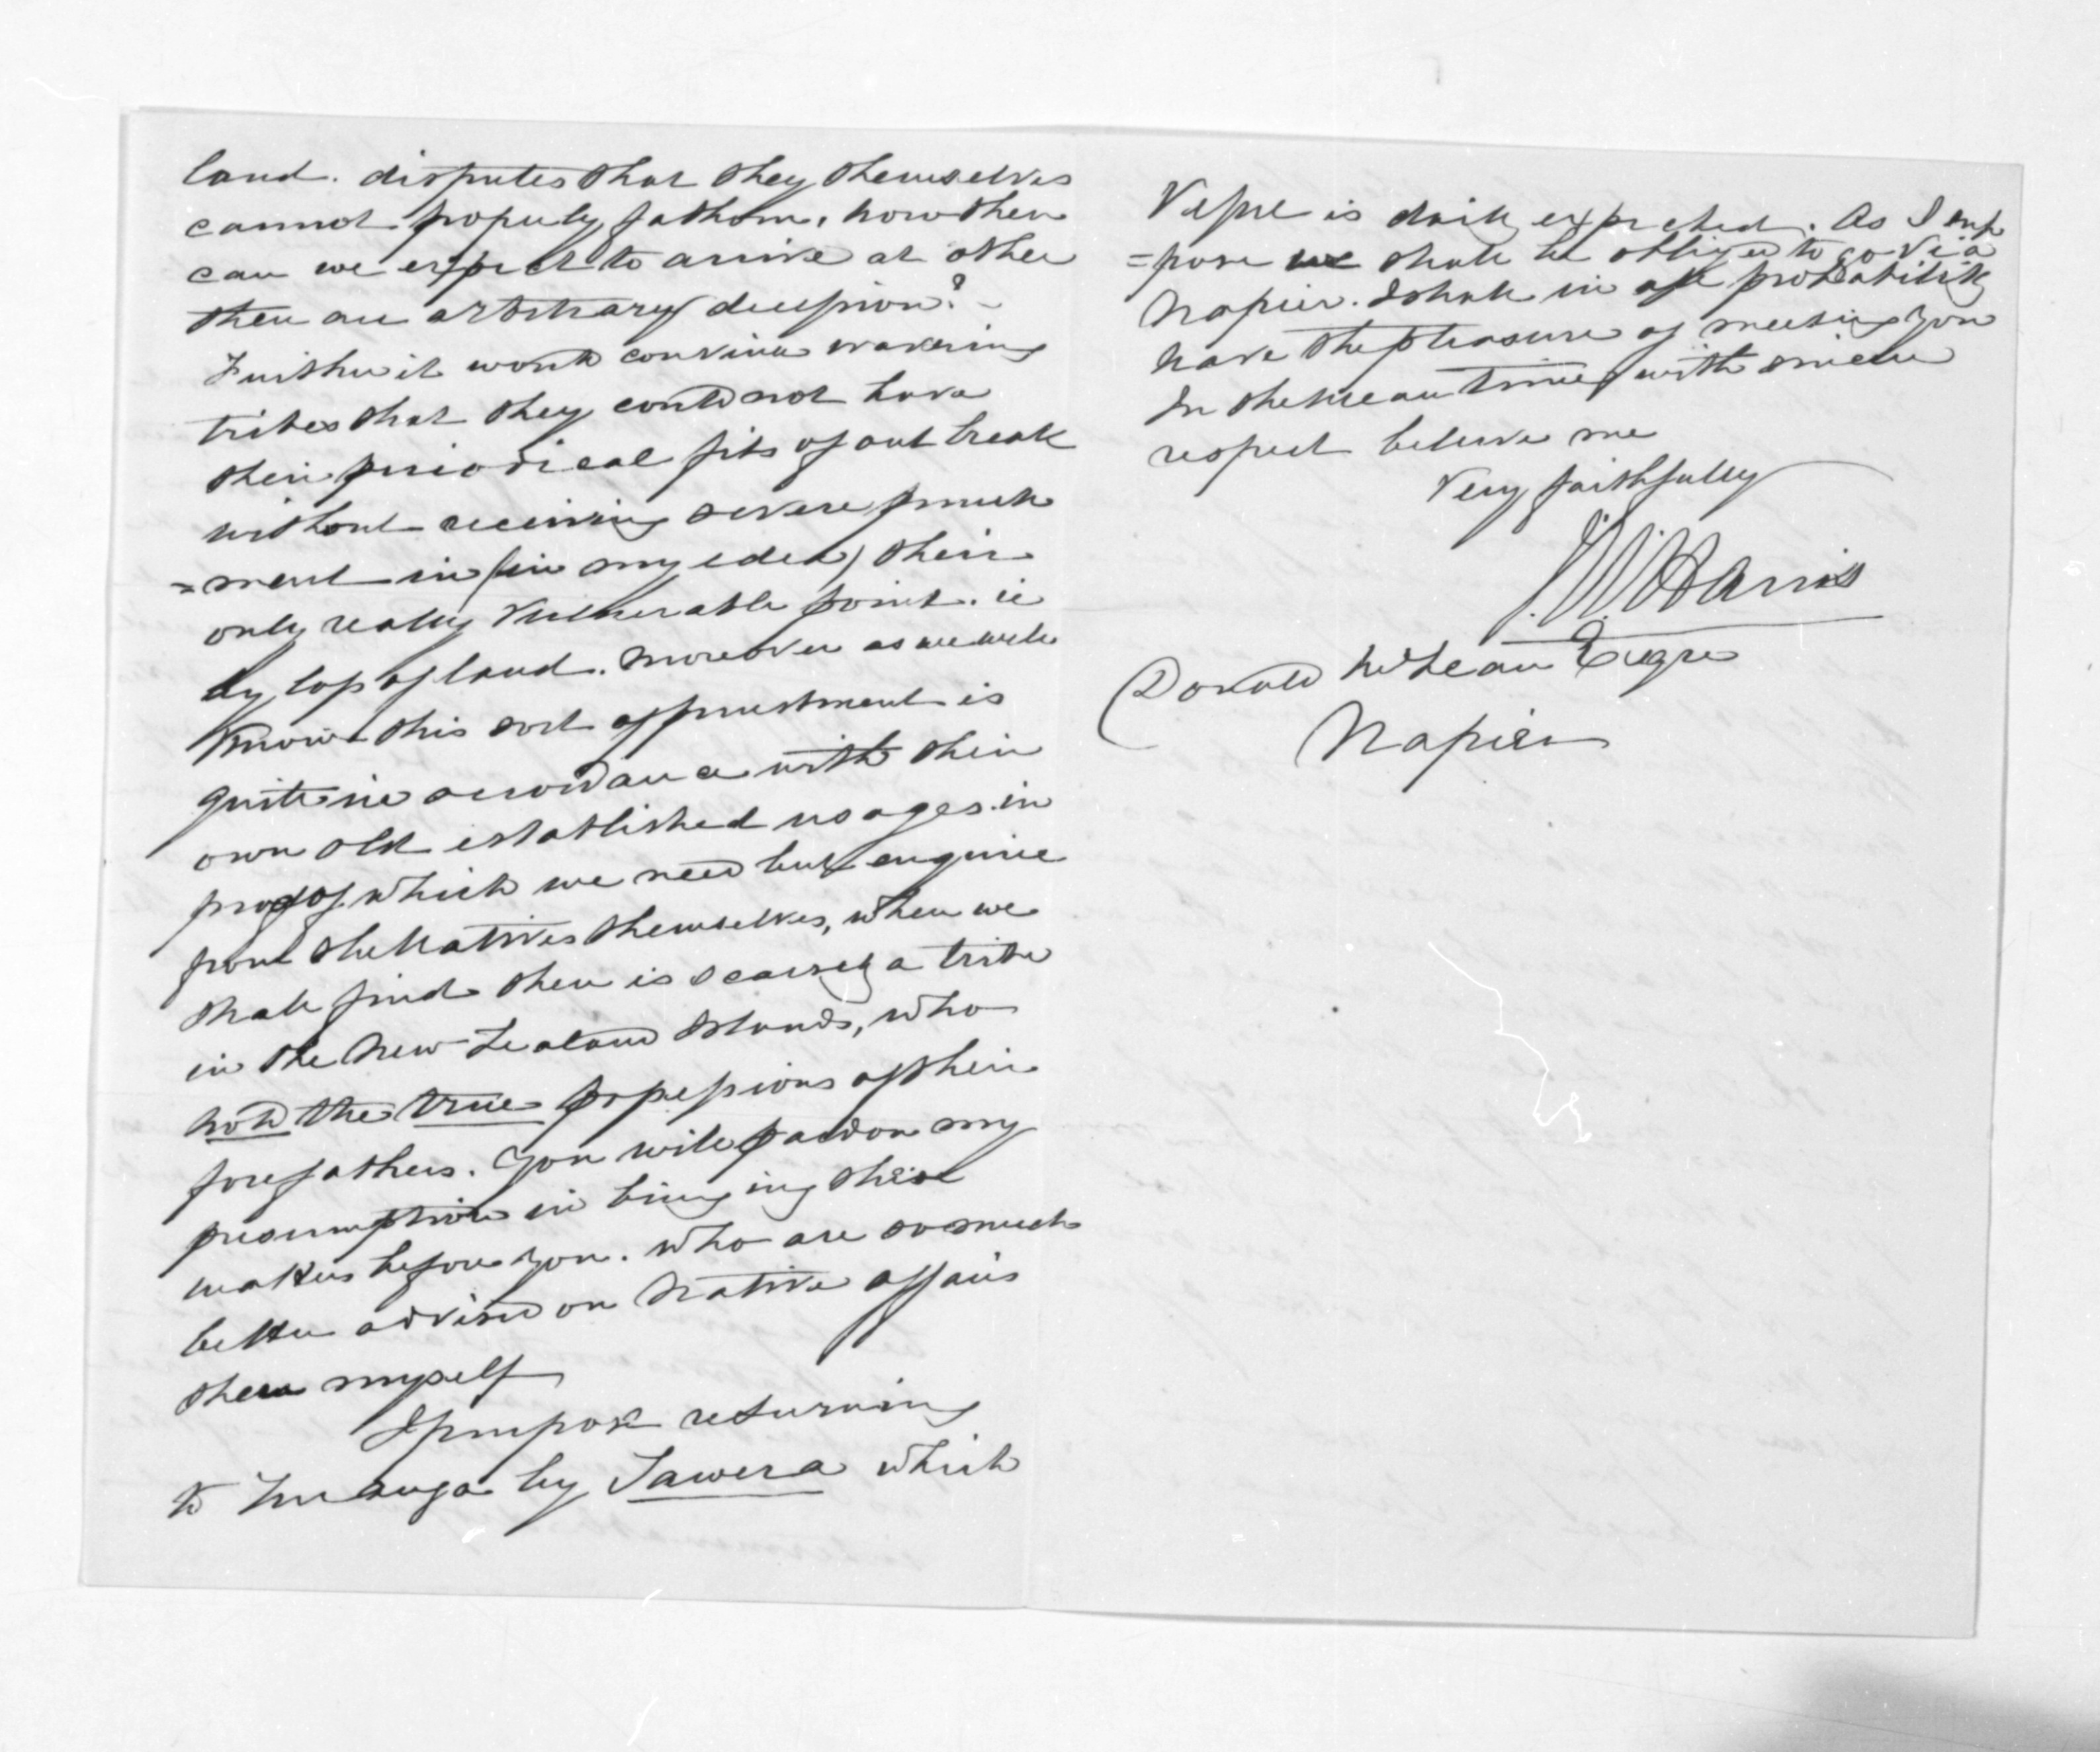 land. disputes that they themselves
cannot properly fathom, how then
can we expect to arrive at other
then an arbitrary decission? -
Further it would convince wavering
tribes that they could not have
their periodical fits of out break
without receiving severe punish
=ment in (in my edea) their
only really vulnerable point. ie
by loss of land. Moreover as we well
know this sort of punishment is
quite in accordance with their
own old established usages in
proof of which we need but enquire
from the Natives themselves, when we
shall find there is scarcely a tribe
in the New Zealand Islands, who
hold the true possessions of their
forefathers. You will pardon my
presumption in bringing these
matters before you. Who are so much
better advised on Native affairs
then myself
I purpose returning
to Turanga by Tawera which
Vessel is daily expected. As I sup
=pose we shall be obliged to go via
Napier. I shall in all probability
have the pleasure of meeting you
In the mean time, with sincere
respect believe me
Very faithfully
J.W. Harris
Donald McLean Esqre
Napier